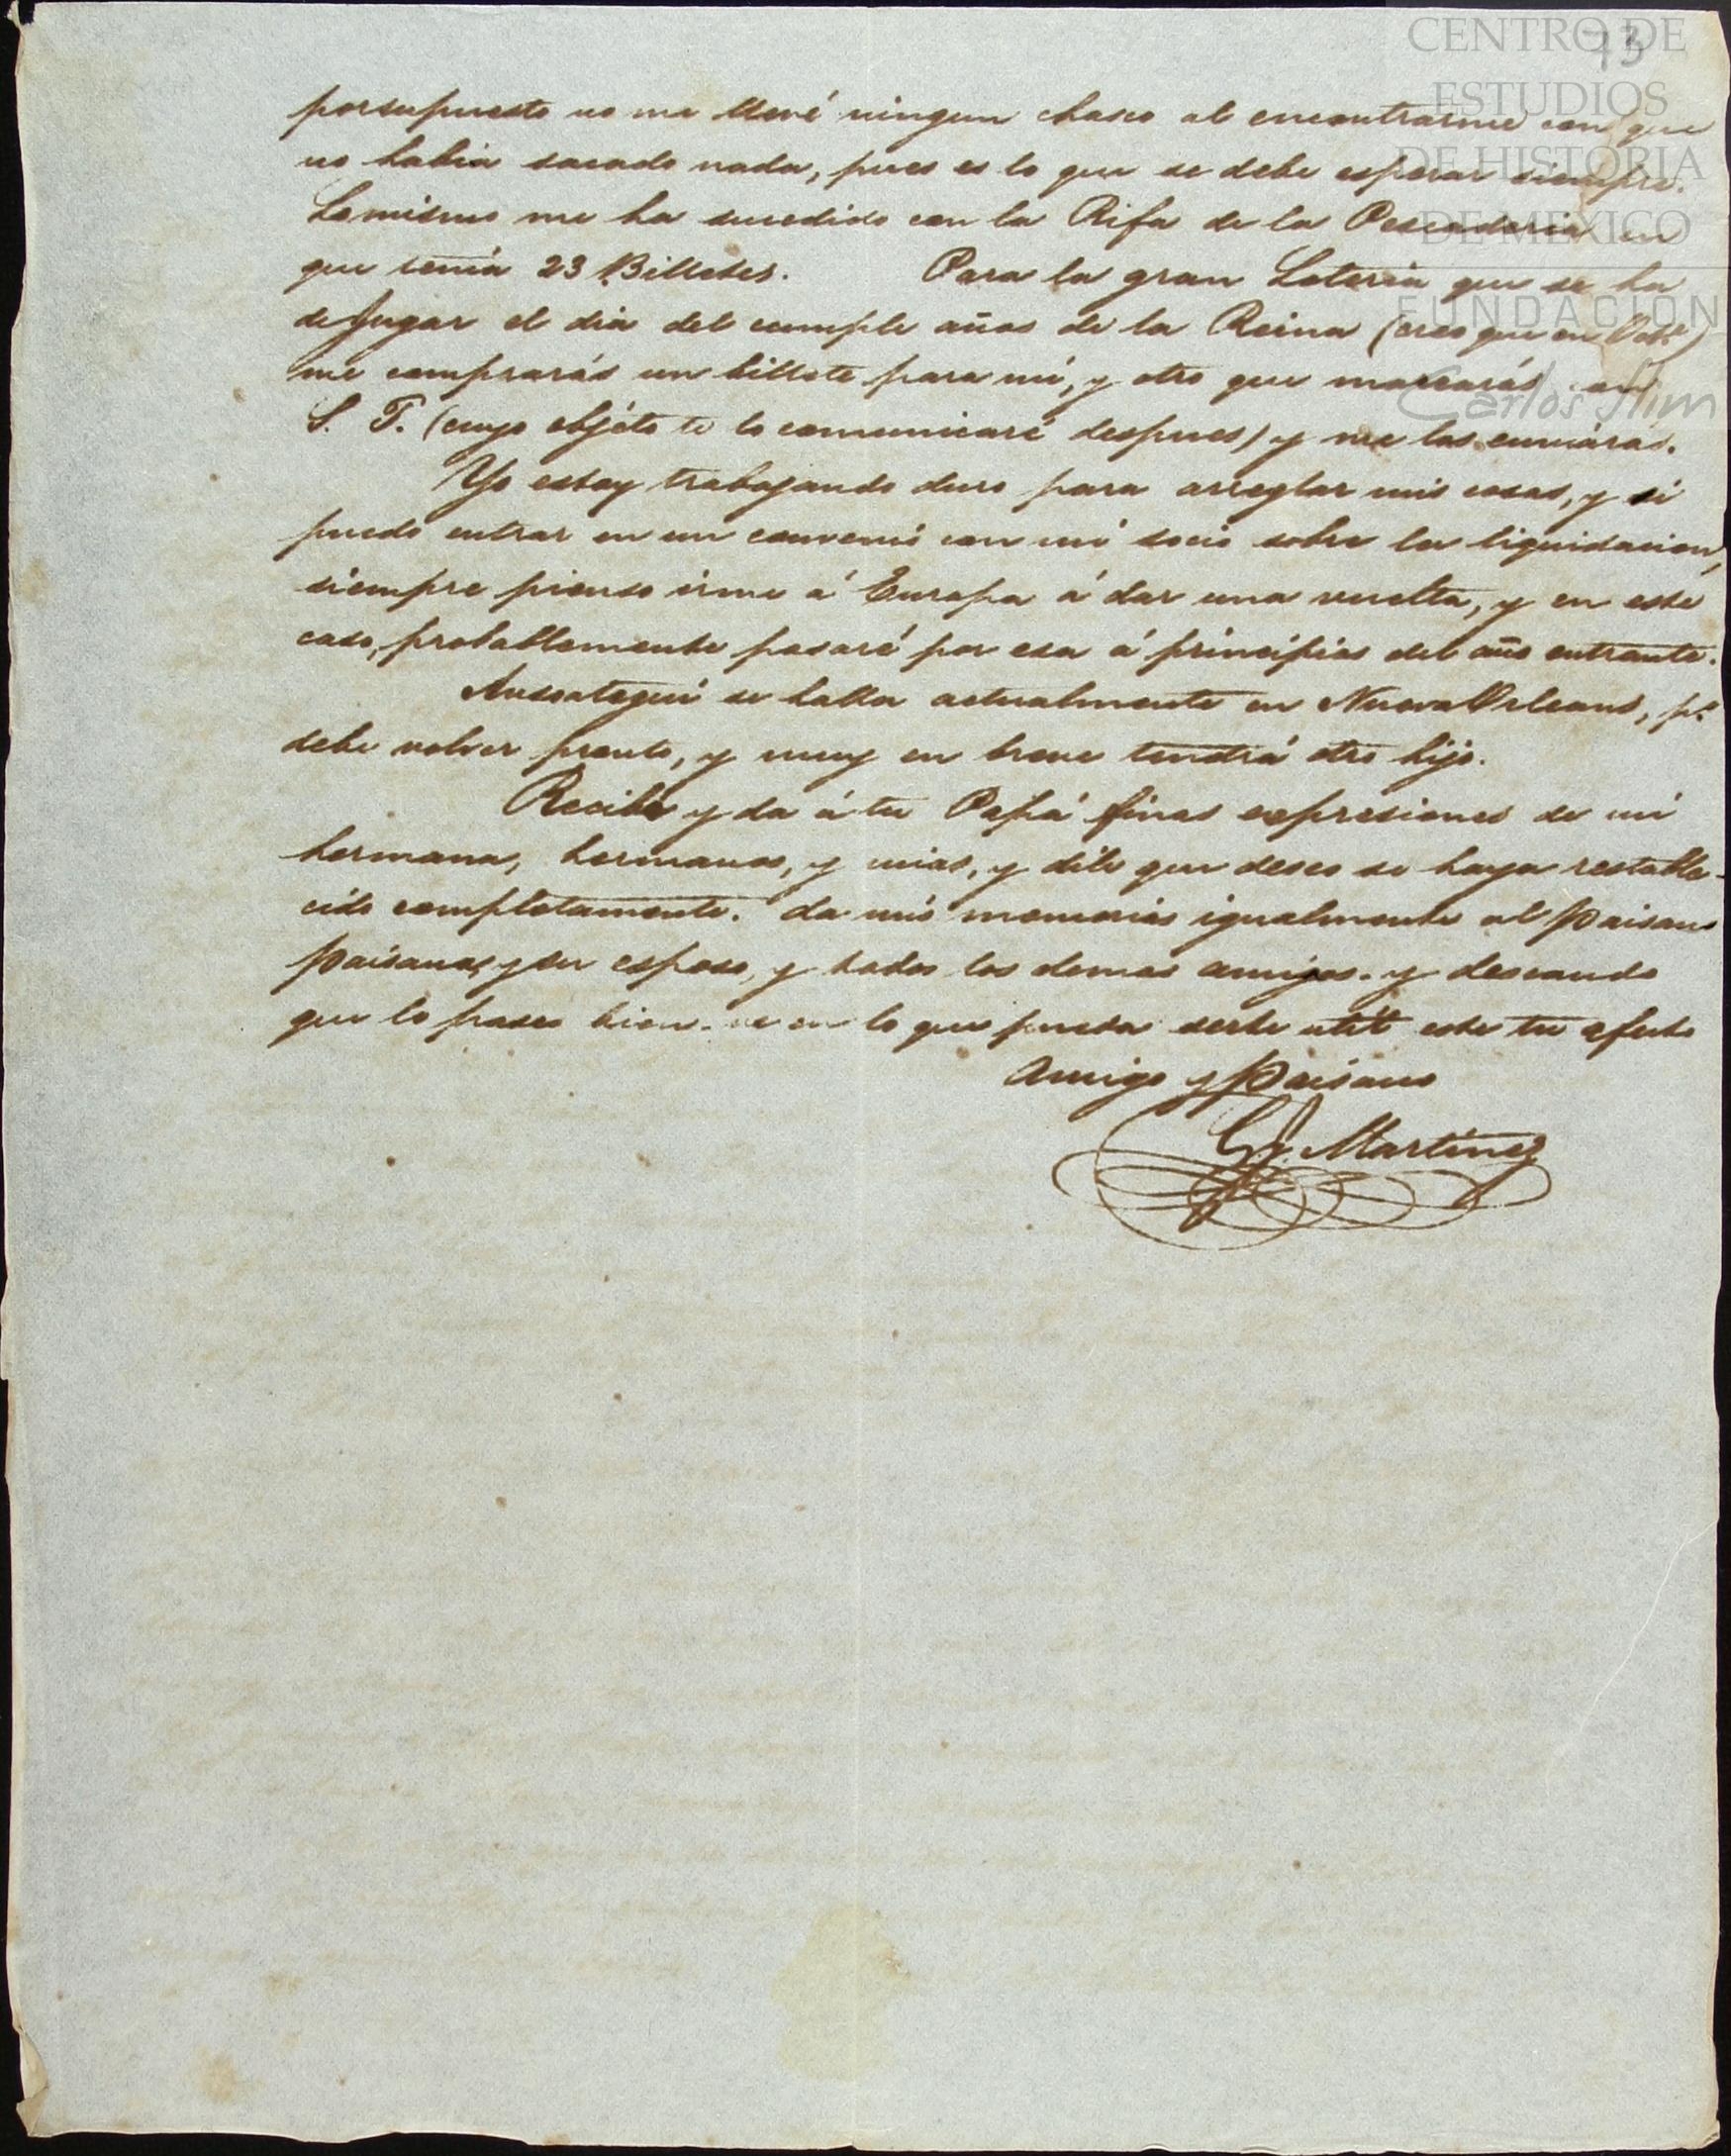 73
CENTRO DE
ESTUDIOS
DE HISTORIA
DE MEXICO
FUNDACIÓN
Carlos Slim
porsupuesto no me llevé ningun chasco al encontrarme con que
no habia sacado nada, pues es lo que se debe esperar siempre.
Lo mismo me ha sucedido con la Rifa de la Pescaderia en
que tenia 23 Billetes. Para la gran Loteria que se ha
de Jugar el dia del cumple años de la Reina (creo que en Oct.e)
me comprarás un billete para mi, y otro que marcarás con
S. T. (cuyo objéto te lo comunicaré despues) y me los enviáras.
Yo estoy trabajando duro para arreglar mis cosas, y si
puedo entrar en un convenio con mi socio sobre la liquidacion,
siempre pienso irme á Europa á dar una vuelta, y en este
caso, probablemente pasaré por esa á principios del año entrante.
Ansoategui se halla actualmente en Nueva Orleans, p.o
debe volver pronto, y muy en breve tendrá otro hijo.
Recibe y da á tu Papá finas expresiones de mi
hermana, hermanos, y mias, y dile que deseo se haya restable-
cido completamente. da mis memorias igualmente al paisano
paisanas y su esposo, y todos los demas amigos. y deseando
que lo pases bien. ve en lo que pueda serte util este tu afecto
Amigo y Paisano
G. J. Martinez